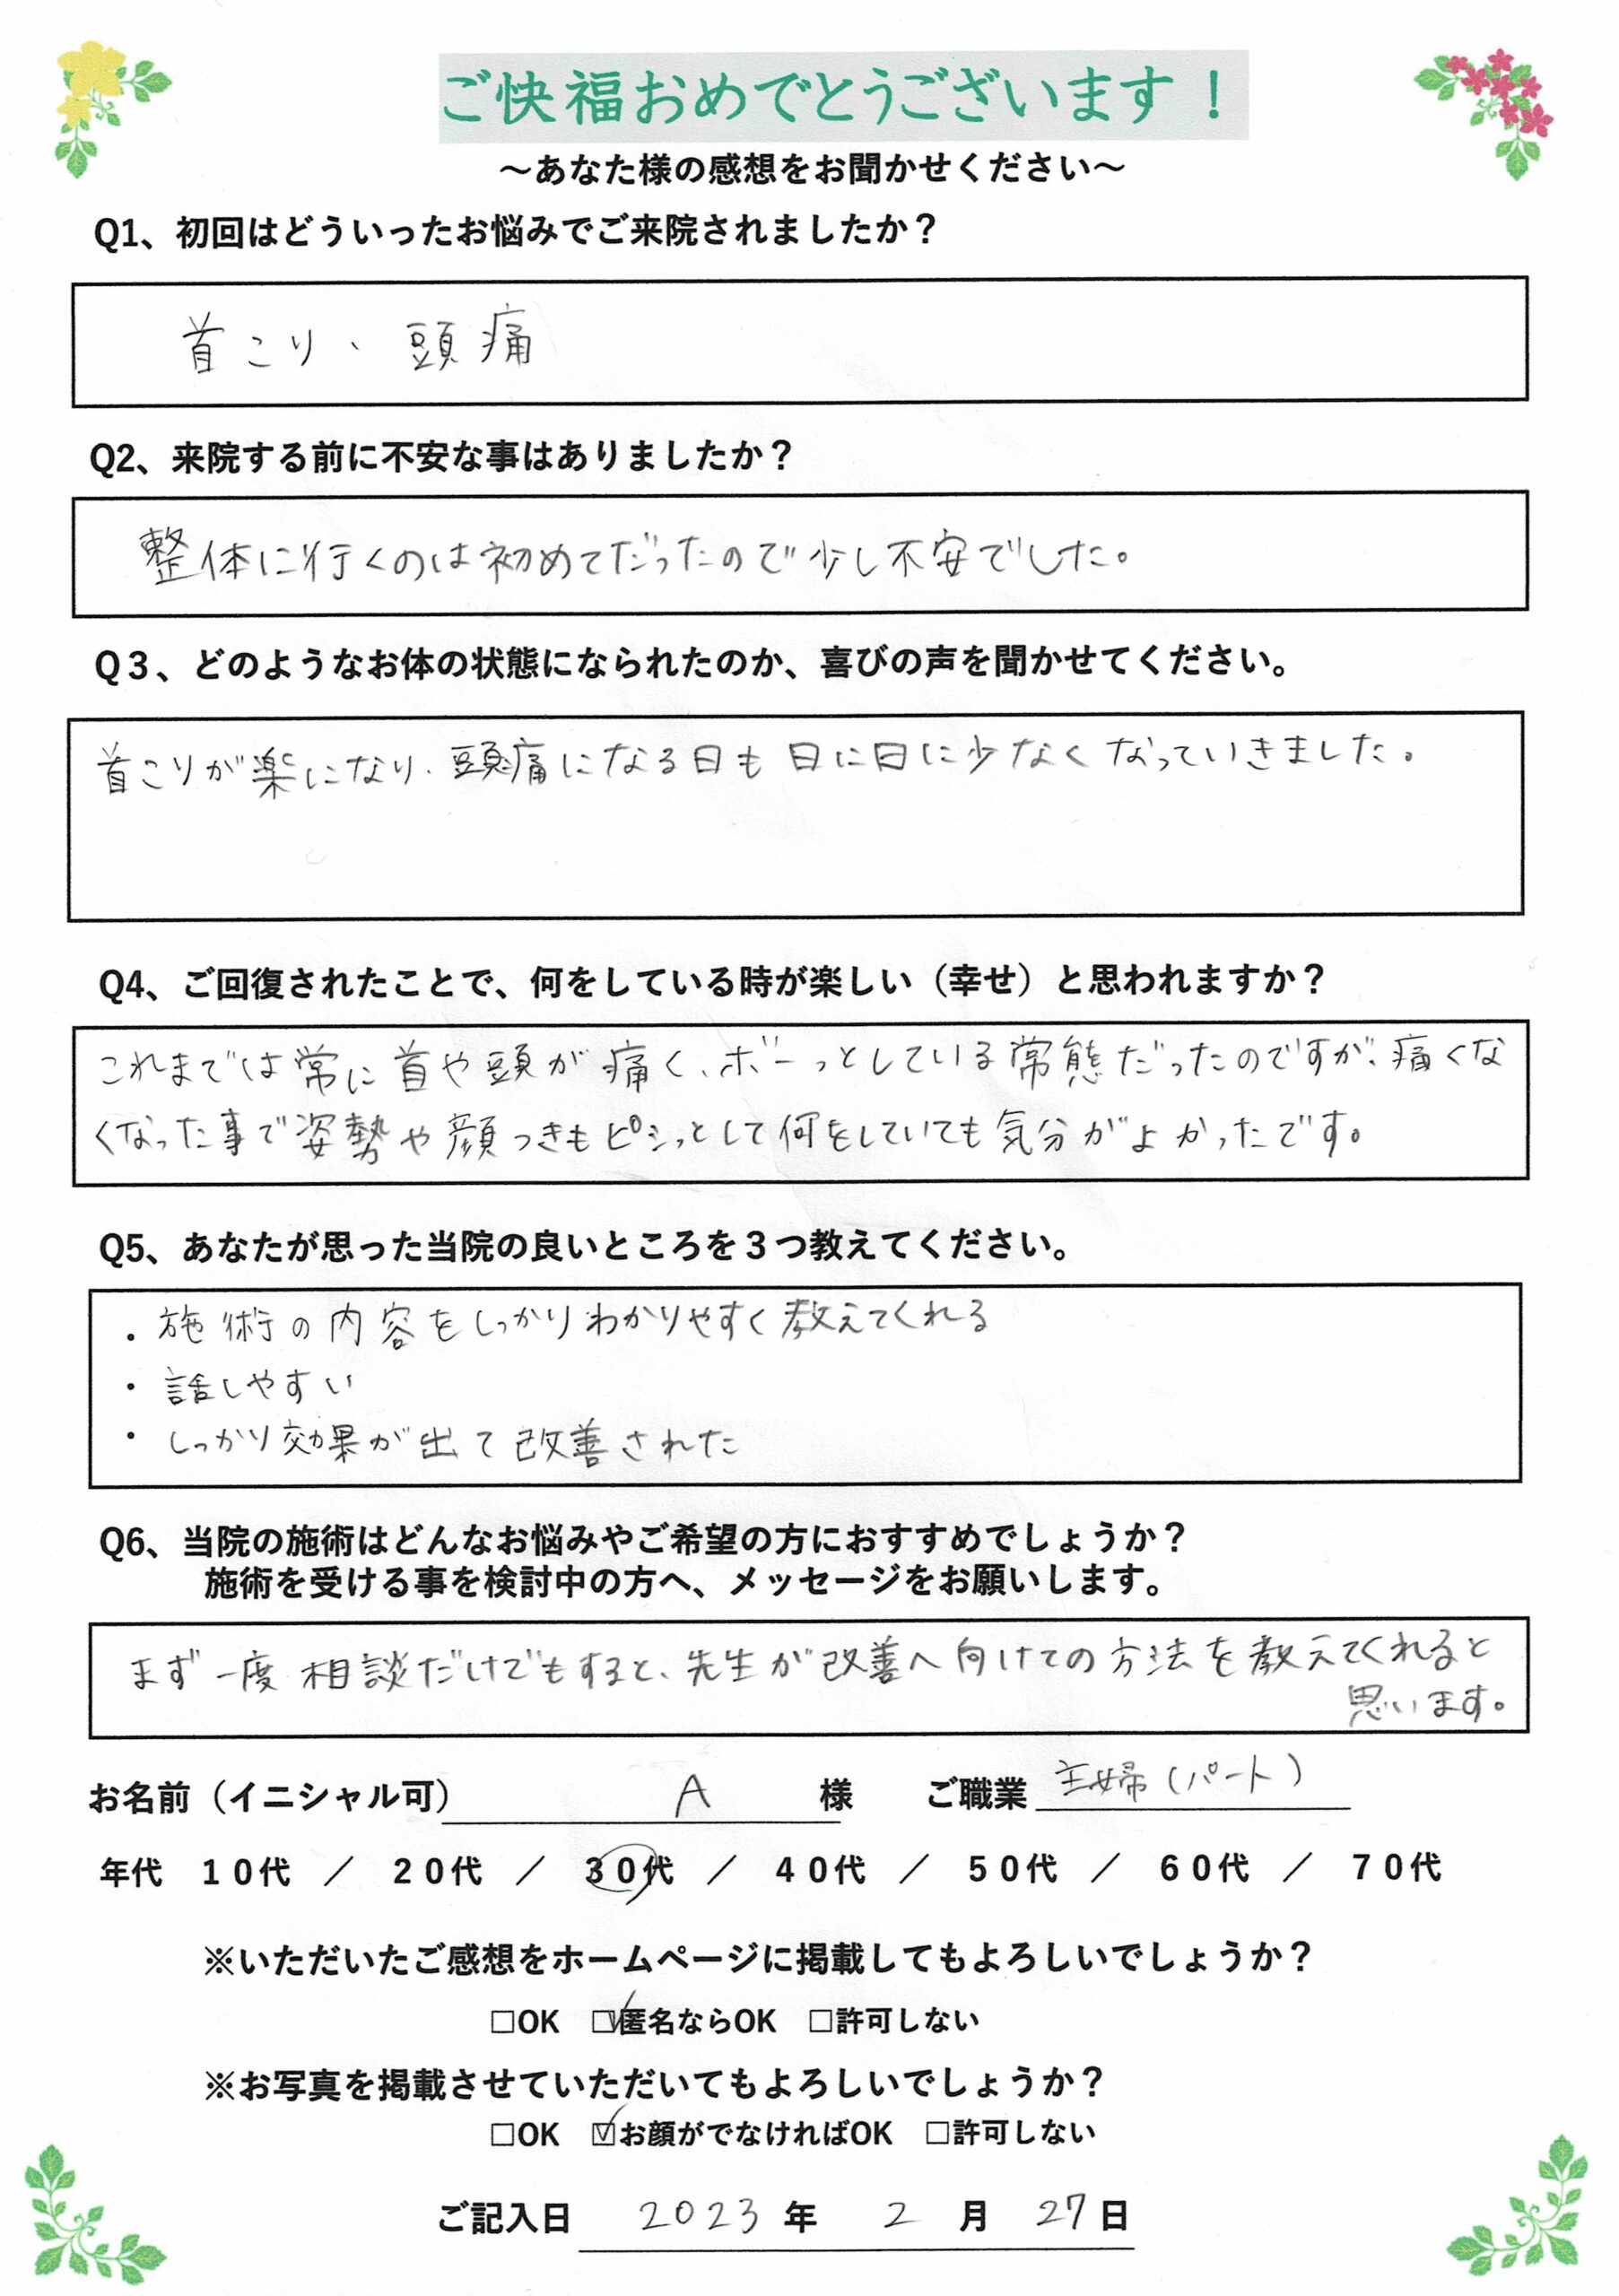 ご快福おめでとうございます！
～あなた様の感想をお聞かせください～
Q1、初回はどういったお悩みでご来院されましたか？
首こり、頭痛
Q2、来院する前に不安な事はありましたか？
整体に行くのは初めてだったので少し不安でした。
Q３、どのようなお体の状態になられたのか、喜びの声を聞かせてください。
首こりが楽になり、頭痛になる日も日に日に少なくなっていきました。
Q4、ご回復されたことで、何をしている時が楽しい（幸せ）と思われますか？
これまでは常に首や頭が痛く、ボーっとしている常態だったのですが、痛くな
くなった事で姿勢や顔つきもピシっとして何をしていても気分がよかったです。
Q5、あなたが思った当院の良いところを３つ教えてください。
・施術の内容をしっかりわかりやすく教えてくれる
・話しやすい
・しっかり効果が出て改善された
Q6、当院の施術はどんなお悩みやご希望の方におすすめでしょうか？
施術を受ける事を検討中の方へ、メッセージをお願いします。
まず一度相談だけでもすると、先生が改善へ向けての方法を教えてくれると
思います。
お名前（イニシャル可） A 様 ご職業 主婦（パート）
年代 １０代 ／ ２０代 ／ ３０代 ／ ４０代 ／ ５０代 ／ ６０代 ／ ７０代
※いただいたご感想をホームページに掲載してもよろしいでしょうか？
□OK ☑匿名ならOK □許可しない
※お写真を掲載させていただいてもよろしいでしょうか？
□OK ☑お顔がでなければOK □許可しない
ご記入日 2023 年 2 月 27 日